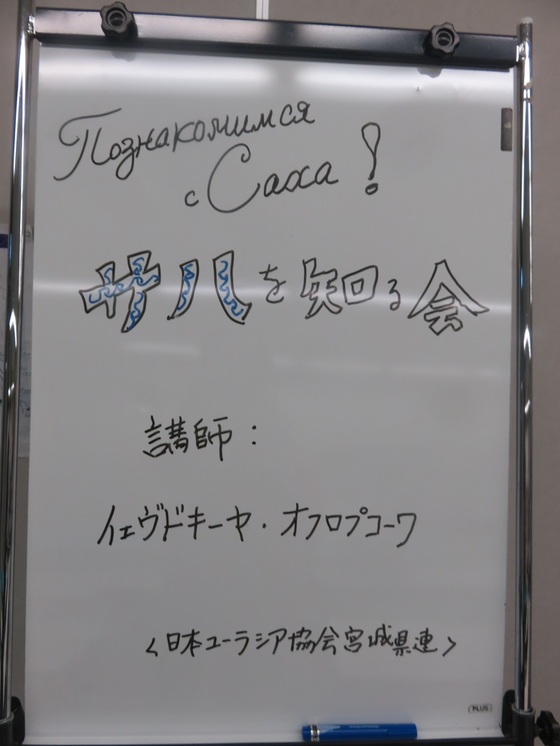 Познакомимся
с Саха!
サハを知る会
講師：
イェヴドキーヤ・オフロプコーワ
<日本ユーラシア協会宮城県連>
PLUS